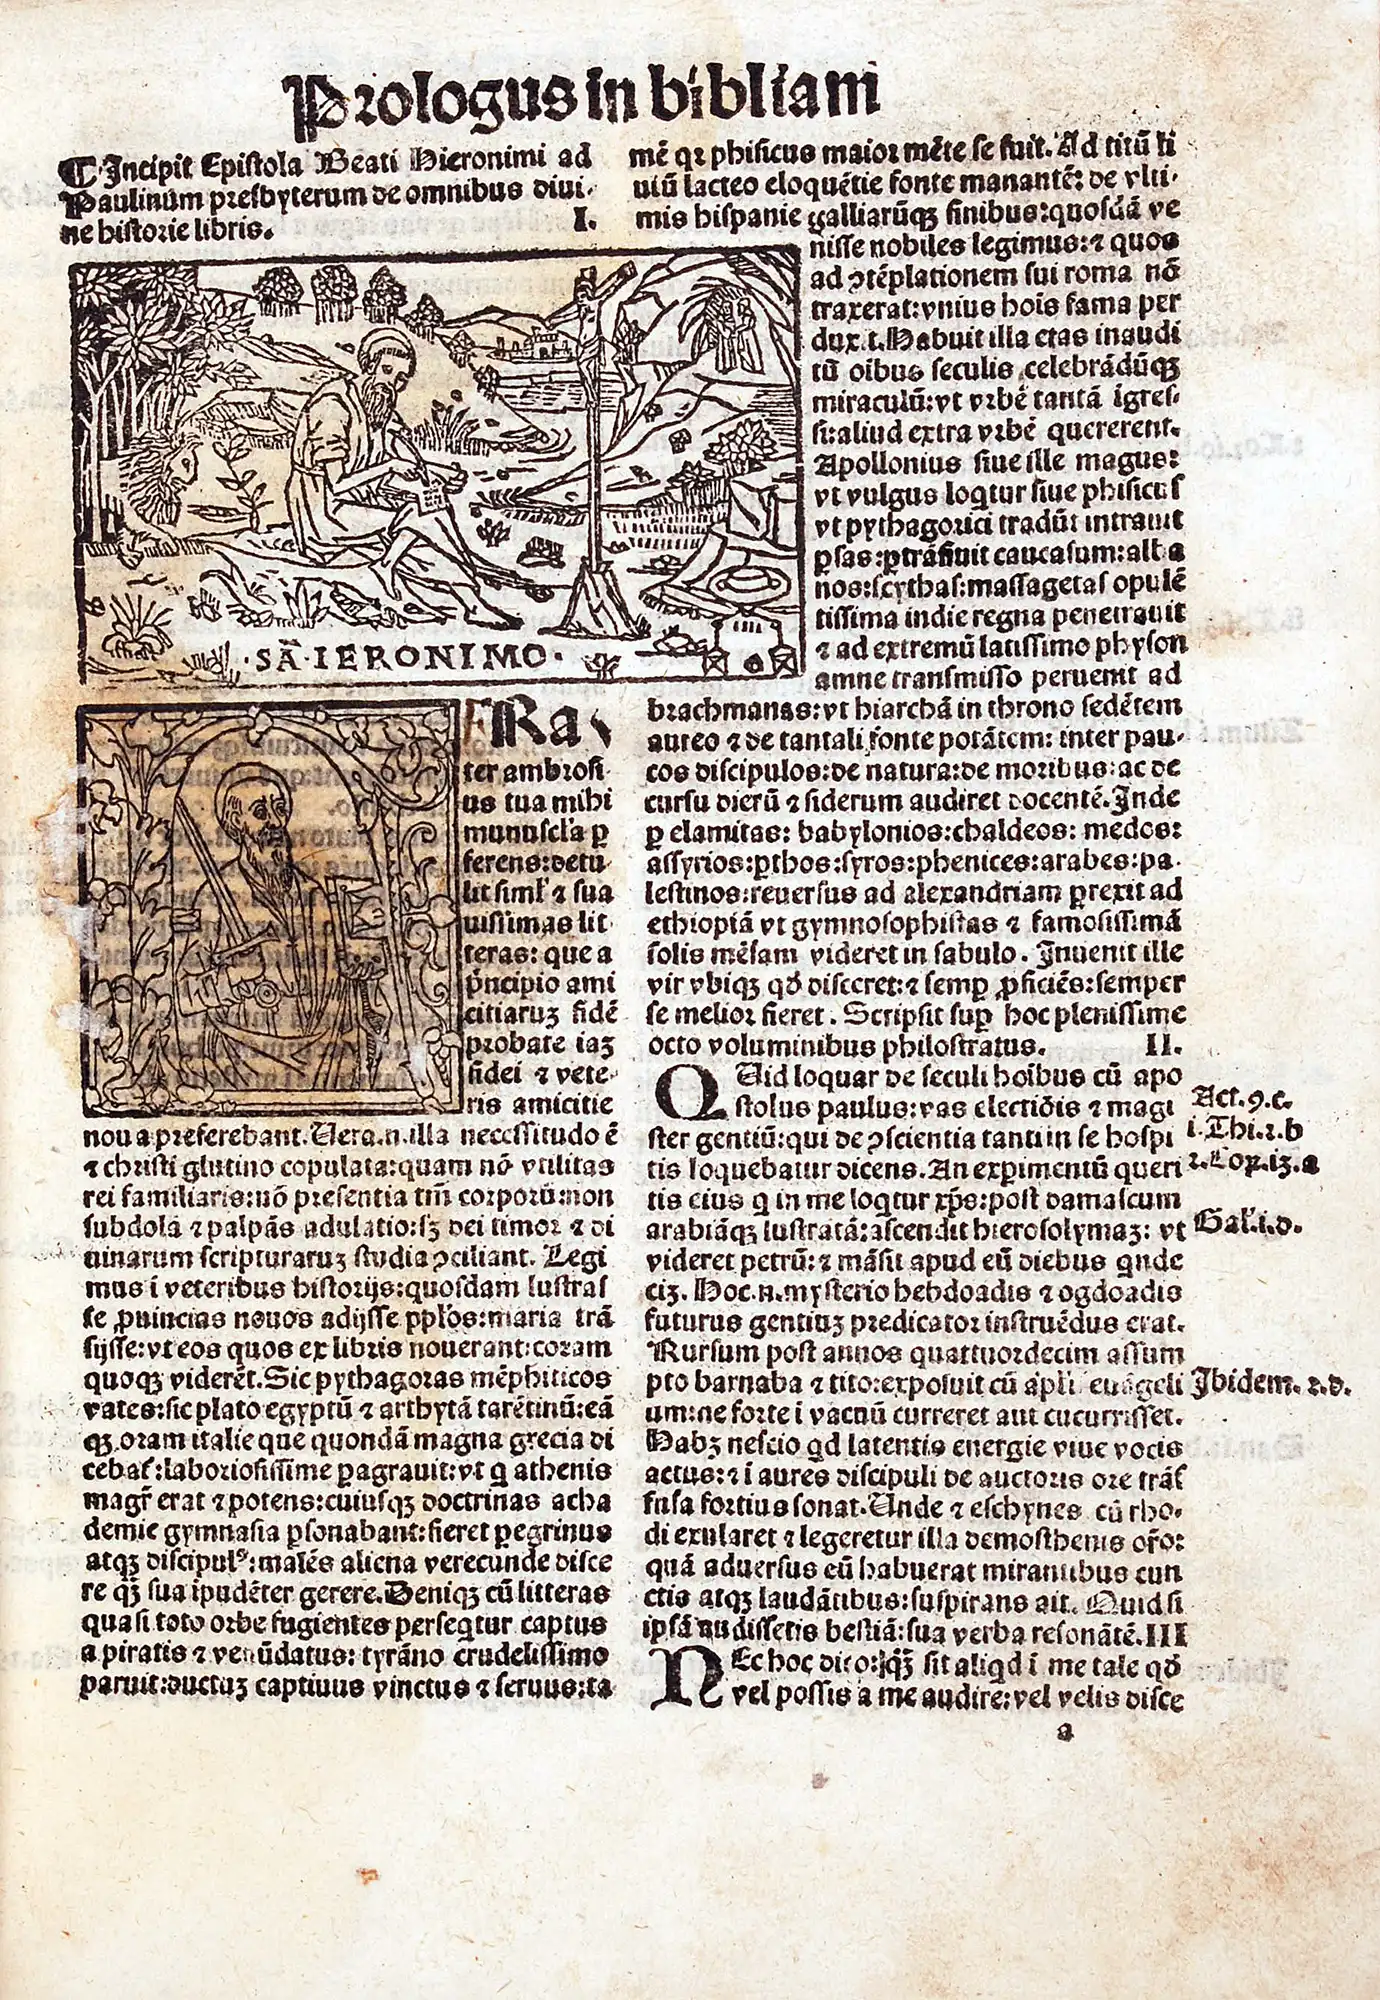 Prologus in bibliam
¶ Incipit Epistola Beati Hieronimi ad
Paulinum presbyterum de omnibus diui-
ne historie libris. I.
·SÃ·IERONIMO·
FRa
ter ambrosi
us tua mihi
munuscl'a ꝑ
ferens: detu
lit siml' ⁊ sua
uissimas lit
teras: que a
p̃ncipio ami
citiaruꝫ fidẽ
probate iaꝫ
fidei ⁊ vete-
ris amicitie
noua preferebant. Uera .n. illa necessitudo ẽ
⁊ christi glutino copulata: quam nõ vtilitas
rei familiaris: nõ presentia tm̃ corporũ: non
subdola ⁊ palpãs adulatio: sꝫ dei timor ⁊ di
uinarum scripturaruꝫ studia ꝯciliant. Legi
mus i veteribus historijs: quosdam lustras
se ꝓuincias nouos adijsse ppl'os: maria trã
sijsse: vt eos quos ex libris nouerant: coram
quoqꝫ viderẽt. Sic pythagoras mẽphiticos
vates: sic plato egyptũ ⁊ arthytã tarẽtinũ: eã
qꝫ oram italie que quondã magna grecia di
cebat̃: laboriosissime ꝑagrauit: vt q athenis
magr̃ erat ⁊ potens: cuiusqꝫ doctrinas acha
demie gymnasia ꝑsonabant: fieret ꝑegrinus
atqꝫ discipulꝰ: malẽs aliena verecunde disce
re qꝫ sua ipudẽter gerere. Deniqꝫ cũ litteras
quasi toto orbe fugientes perseqtur captus
a piratis ⁊ venũdatus: tyrãno crudelissimo
paruit: ductuꝫ captiuus vinctus ⁊ seruus: ta
mẽ qꝛ phisicus maior mẽte se fuit. Ad titũ li
uiũ lacteo eloquẽtie fonte manantẽ: de vlti-
mis hispanie galliarũqꝫ finibus: quosdã ve
nisse nobiles legimus: ⁊ quos
ad ꝯtẽplationem sui roma nõ
traxerat: vnius hoĩs fama per
dux.t. Habuit illa etas inaudi
tũ oĩbus seculis celebrãdũqꝫ
miraculũ: vt vrbẽ tantã igres-
si: aliud extra vrbẽ quererent.
Apollonius siue ille magus:
vt vulgus loqtur siue phisicus
vt pythagorici tradũt intrauit
ꝑsas: ꝑtrãsiuit caucasum: alba
nos: scythas: massagetas opulẽ
tissima indie regna penetrauit
⁊ ad extremũ latissimo physon
amne transmisso peruenit ad
brachmanas: vt hiarchã in throno sedẽtem
aureo ⁊ de tantali fonte potãtem: inter pau-
cos discipulos: de natura: de moribus: ac de
cursu dierũ ⁊ siderum audiret docentẽ. Inde
ꝑ elamitas: babylonios: chaldeos: medos:
assyrios: ꝑthos: syros: phenices: arabes: pa-
lestinos: reuersus ad alexandriam ꝑrexit ad
ethiopiã vt gymnosophistas ⁊ famosissimã
solis mẽsam videret in sabulo. Inuenit ille
vir vbiqꝫ qd̃ disceret: ⁊ semꝑ ꝓficiẽs: semper
se melior fieret. Scripsit suꝑ hoc plenissime
octo voluminibus philostratus. II.
QUid loquar de seculi hoĩbus cũ apo
stolus paulus: vas electiõis ⁊ magi
ster gentiũ: qui de ꝯscientia tanti in se hospi
tis loquebatur dicens. An exꝑimentũ queri
tis eius q in me loqtur xp̃s: post damascum
arabiãqꝫ lustratã: ascendit hierosolymaꝫ: vt
videret petrũ: ⁊ mãsit apud eũ diebus qnde
ciꝫ. Hoc .n. mysterio hebdoadis ⁊ ogdoadis
futurus gentiuꝫ predicator instruẽdus erat.
Rursum post annos quattuordecim assum
pto barnaba ⁊ tito: exposuit cũ apl'i euãgeli
um: ne forte i vacuũ curreret aut cucurrisset.
Habꝫ nescio qd latentis energie viue vocis
actus: ⁊ i aures discipuli de auctoris ore trãs
fusa fortius sonat. Unde ⁊ eschynes cũ rho-
di exularet ⁊ legeretur illa demosthenis or̃o:
quã aduersus eũ habuerat mirantibus cun
ctis atqꝫ laudãtibus: suspirans ait. Quid si
ipsã audissetis bestiã: sua verba resonãtẽ. III
NEc hoc dico: qꝫ sit aliqd i me tale qd̃
vel possis a me audire: vel velis disce
a
Act. 9. c.
i. Thi. 2. b
2. Cor. 13. a
Gal'. i. d.
Ibidem. 2. d.